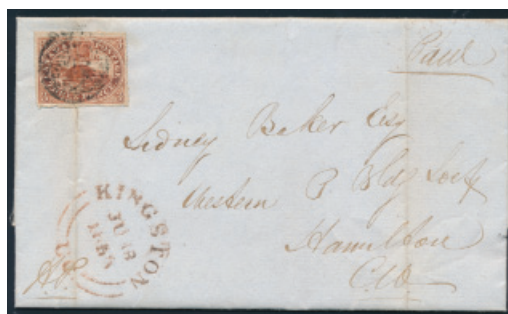 Paid
Sidney Baker Esq
Western P. Bldg Socty
Hamilton
C.W.
KINGSTON
JU 18